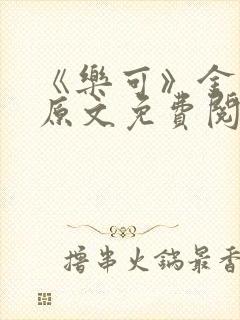 《樂可》全
原文免費閱
擼串火鍋最香